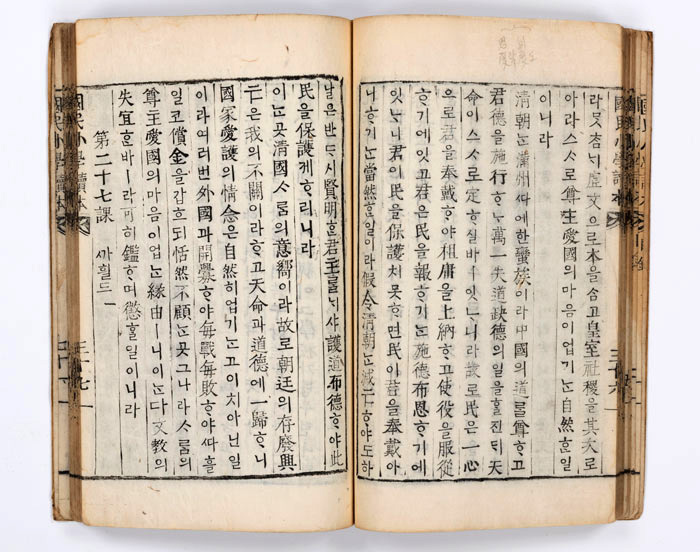 라못참ᄂᆡ虛文으로本을ᄉᆞᆷ고皇室社稷을其次로
아라스ᄉᆞ로尊主愛國의마음이업기ᄂᆞᆫ自然ᄒᆞᆫ일
이니라
淸朝ᄂᆞᆫ滿州ᄯᅡ에한蠻族이라中國의道ᄅᆞᆯ尊ᄒᆞ고
君德을施行ᄒᆞᄂᆞ萬一失道缺德의일을ᄒᆞᆯ진ᄃᆡ天
命이스ᄉᆞ로定ᄒᆞ실바ㅣ잇ᄂᆞ니라故로民은一心
으로君을奉戴ᄒᆞ야租庸을上納ᄒᆞ고使役을服從
ᄒᆞ기에잇고君은民을報ᄒᆞ기ᄂᆞᆫ施德布恩ᄒᆞ기에
잇ᄂᆞ니君이民을保護치못ᄒᆞ면民이君을奉戴아
니ᄒᆞ기ᄂᆞᆫ當然ᄒᆞᆫ일이라假令淸朝ᄂᆞᆫ滅亡ᄒᆞ야도하
날은반ᄃᆞ시賢明ᄒᆞᆫ君主ᄅᆞᆯᄂᆡ샤護道布德ᄒᆞ야此
民을保護케ᄒᆞ리니라
이ᄂᆞᆫ곳淸國ᄉᆞᄅᆞᆷ의意嚮이라故로朝廷의存廢興
亡은我의不關이라ᄒᆞ고天命과道德에一歸ᄒᆞ니
國家愛護의情念은自然히업기ᄂᆞᆫ고이치아닌일
이라여러번外國과開釁ᄒᆞ야每戰每敗ᄒᆞ야ᄯᅡ흘
일코償金을갑흐되恬然不顧ᄂᆞᆫ곳그나라ᄉᆞᄅᆞᆷ의
尊主愛國의마음이업ᄂᆞᆫ緣由ㅣ니이ᄂᆞᆫ다文敎의
失宜ᄒᆞᆫ바ㅣ라可히鑑ᄒᆞ며懲ᄒᆞᆯ일이니라
第二十七課 ᄭᅡ휠드一
國民小學讀本
三十七